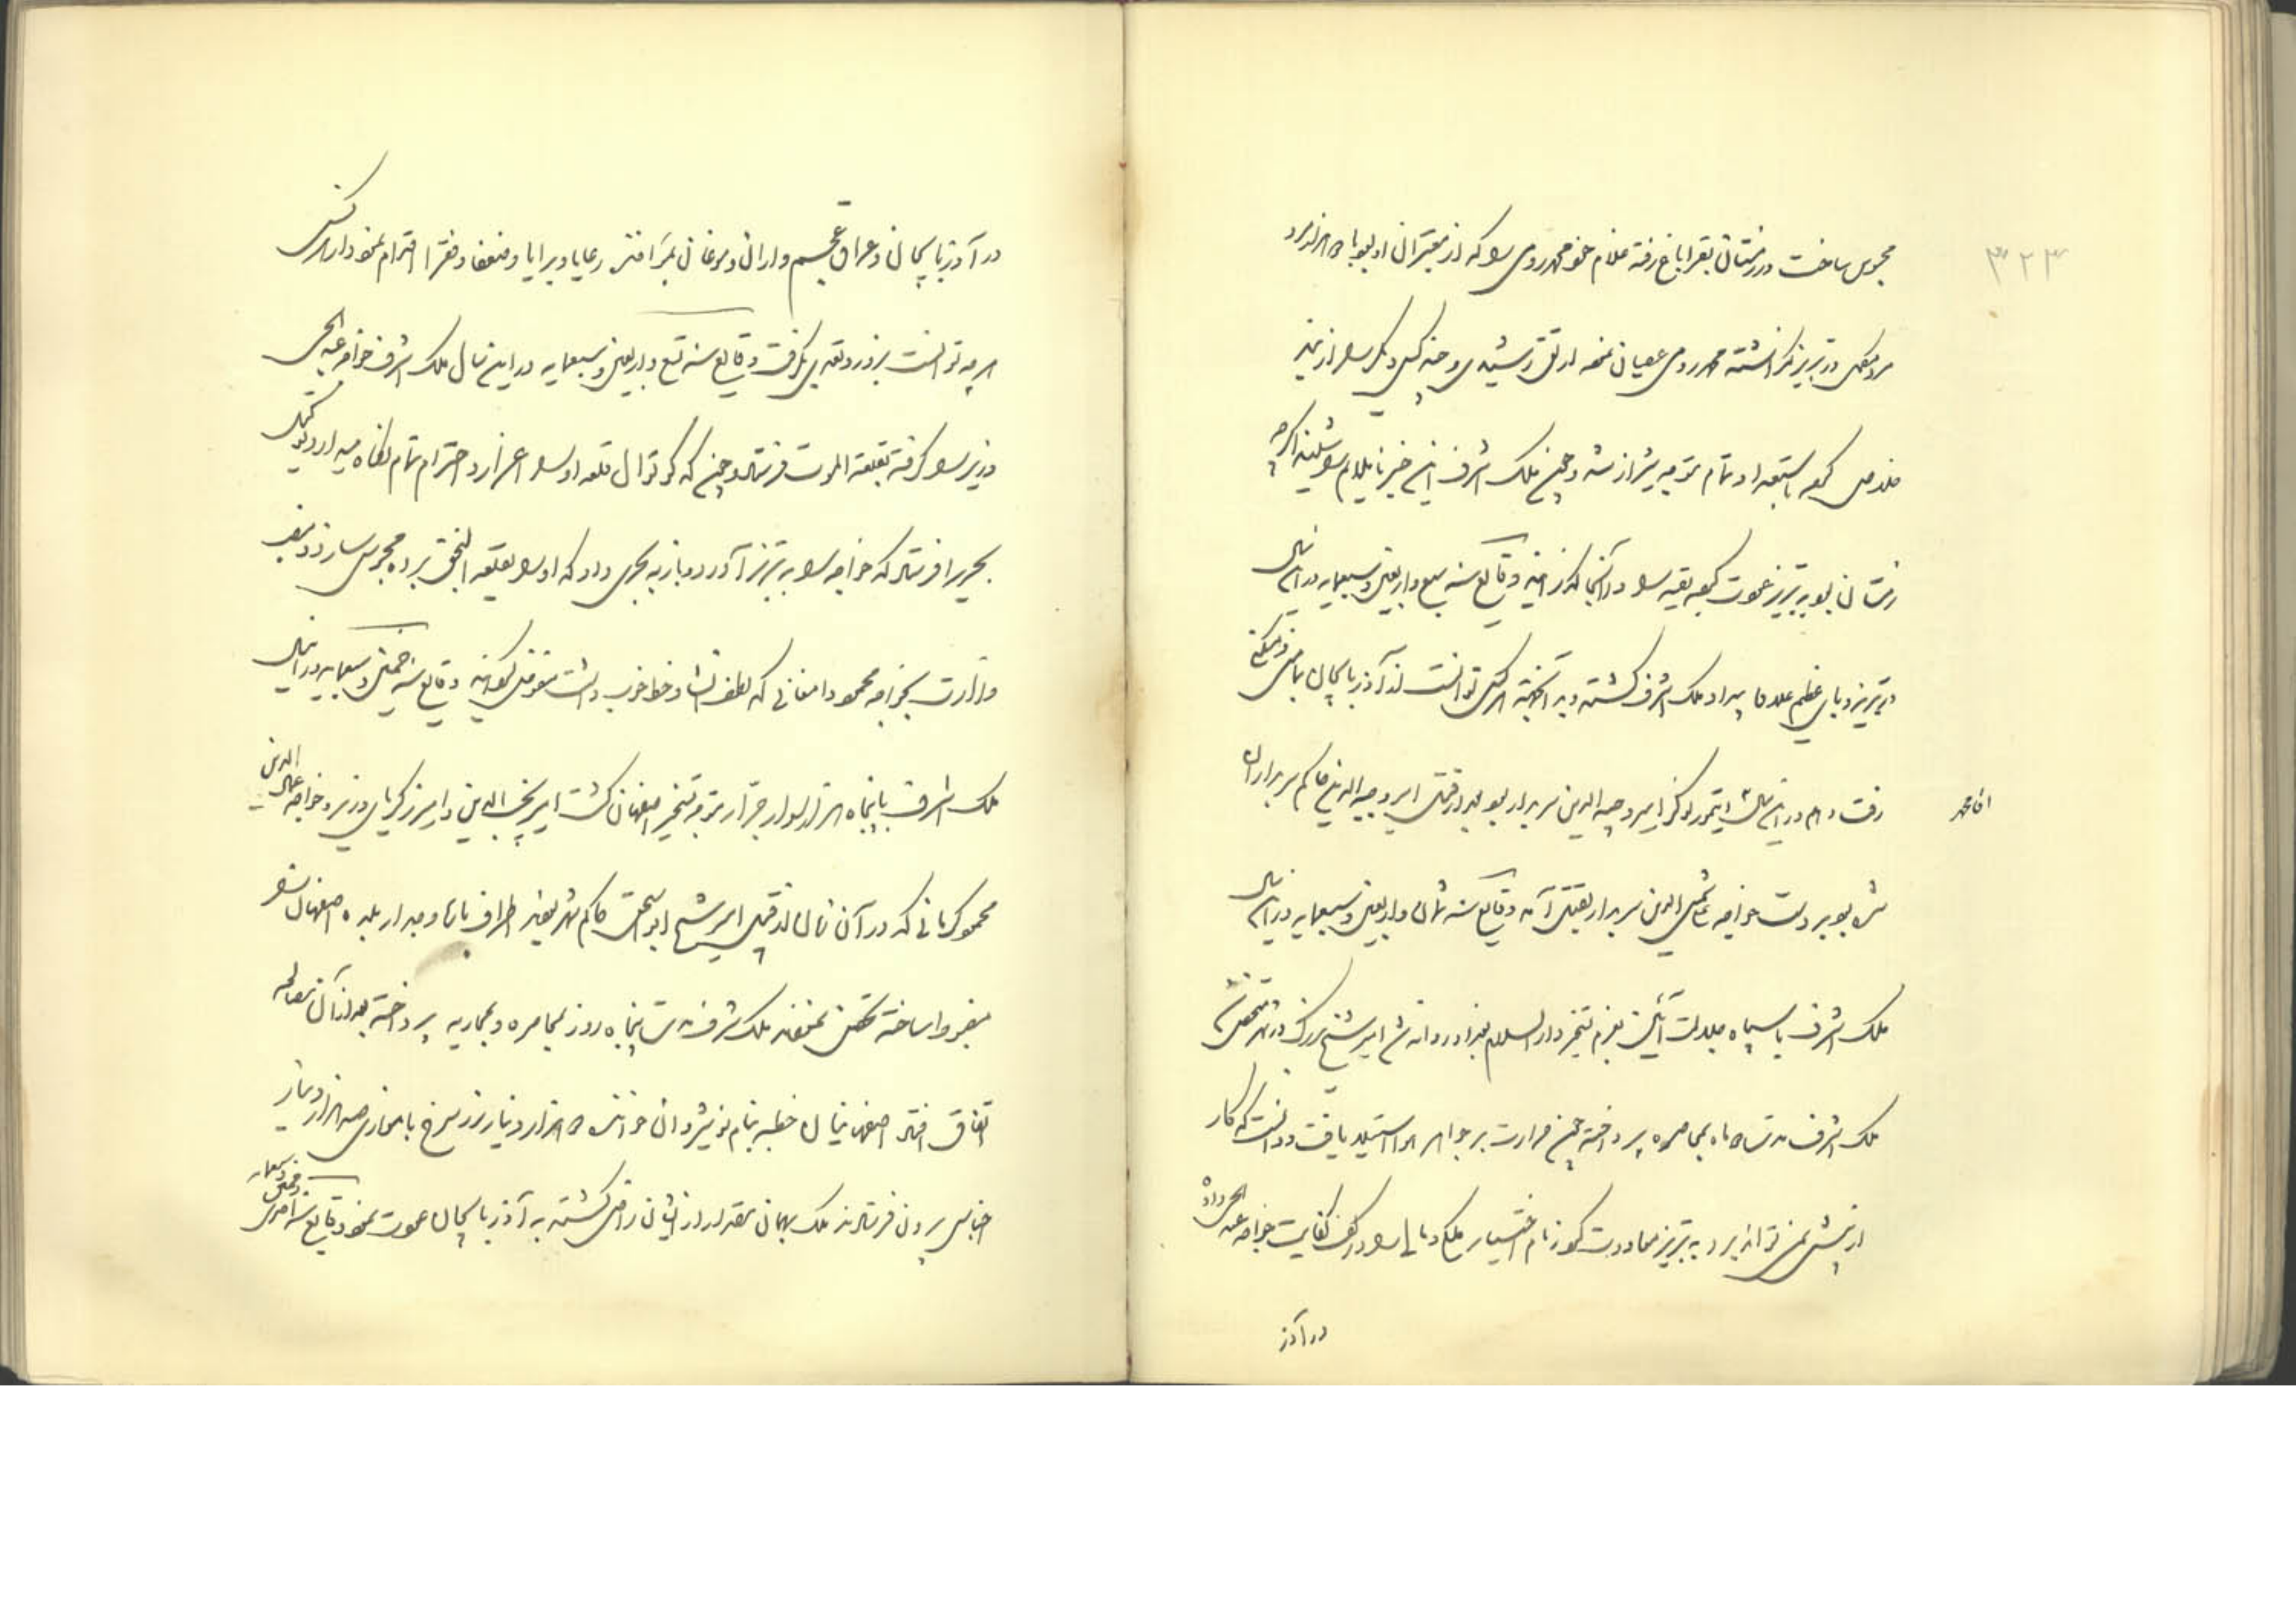 ۳۲۳
محبوس ساخت و در زمستان بقراباغ رفته غلام خود محمد رومی را که از معتبران او بود با ده هزار مرد
در تبریز گذاشته محمد رومی عصیان نموده و چند کس دیگر را از بند
خلاص کرده باستعداد تمام متوجه شیراز شد و چون ملک اشرف این خبر
زمستان بود به تبریز عود کرده بقیه را در آنجا گذرانید وقایع سنه سبع و اربعین و سبعمایه در این سال
در تبریز وبای عظیم علاوه بیداد ملک اشرف گشته هر کس توانست از آذربایجان
رفت و هم در این سال ایتمور که نوکر امیر وجیه الدین سربدار بود و از قبل امیر وجیه الدین حاکم سربداران
آقا محمد
شده بود بر دست خواجه شمس الدین سربدار بقتل آمد وقایع سنه ثمان و اربعین و سبعمایه در این سال
ملک اشرف با سپاه جلادت آئین بعزم تسخیر دار السلام بغداد روانه شد امیر شیخ بزرگ در شهر متحصن شد
ملک اشرف مدت ده ماه بمحاصره پرداخته چون حرارت بر جواهر هوا استیلا یافت و دانست که کار
از پیش نمی تواند برد به تبریز معاودت کرد زمام اختیار ملک و مال را در کف کفایت خواجه عبد الحی داده
در آذر
در آذربایجان و عراق عجم و اران و موغان رعایا و برایا و ضعفا و فقرا
هر چه توانست بزور و تعدی بگرفت وقایع سنه تسع و اربعین و سبعمایه در این سال ملک اشرف خواجه عبد الحی
وزیر را گرفته بقلعه الموت فرستاد و چون که کوتوال قلعه او را اعزاز و احترام تمام نگاه میداد
فرستاد که خواجه را به تبریز آورد و باز به داد که او را بقلعه النجق برده محبوس سازد
وزارت بخواجه محمود دامغانی که لطف انشا و خط خوب داشت مفوض گردانید وقایع سنه خمسین و سبعمایه در این سال
ملک اشرف با پنجاه هزار سوار جرار متوجه تسخیر اصفهان گشت امیر نجیب الدین و امیر زکریای وزیر و خواجه عماد الدین
محمود کرمانی که در آن زمان از قبل امیر شیخ ابو اسحق حاکم شهر بودند اطراف بارو و جدار بلده اصفهان را
مضبوط ساخته تحصن نمودند ملک اشرف مدت پنجاه روز بمحاصره و محاربه پرداخته بعد از آن مصالحه
اتفاق افتاد اصفهانیان خطبه بنام نوشیروان خواندند و ده هزار دینار زر سرخ با موازی صد هزار دینار
اجناس بیرون فرستادند ملک بهمان مقدار از ایشان راضی گشته به آذربایجان عود نمود وقایع سنه احدی و خمسین و سبعمایه